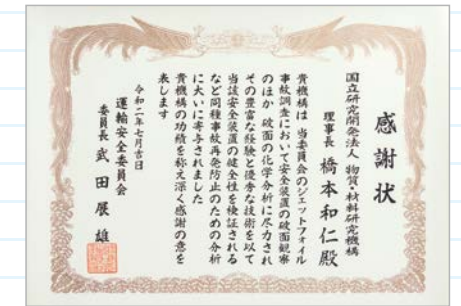 感謝状
国立研究開発法人 物質・材料研究機構
理事長 橋本和仁殿
貴機構は 当委員会のジェットフォイル
事故調査において安全装置の破面観察
のほか 破面の化学分析に尽力され
その豊富な経験と優秀な技術を以て
当該安全装置の健全性を検証される
など同種事故再発防止のための分析
に大いに寄与されました
貴機構の功績を称え深く感謝の意を
表します
令和二年七月吉日
運輸安全委員会
委員長 武田展雄